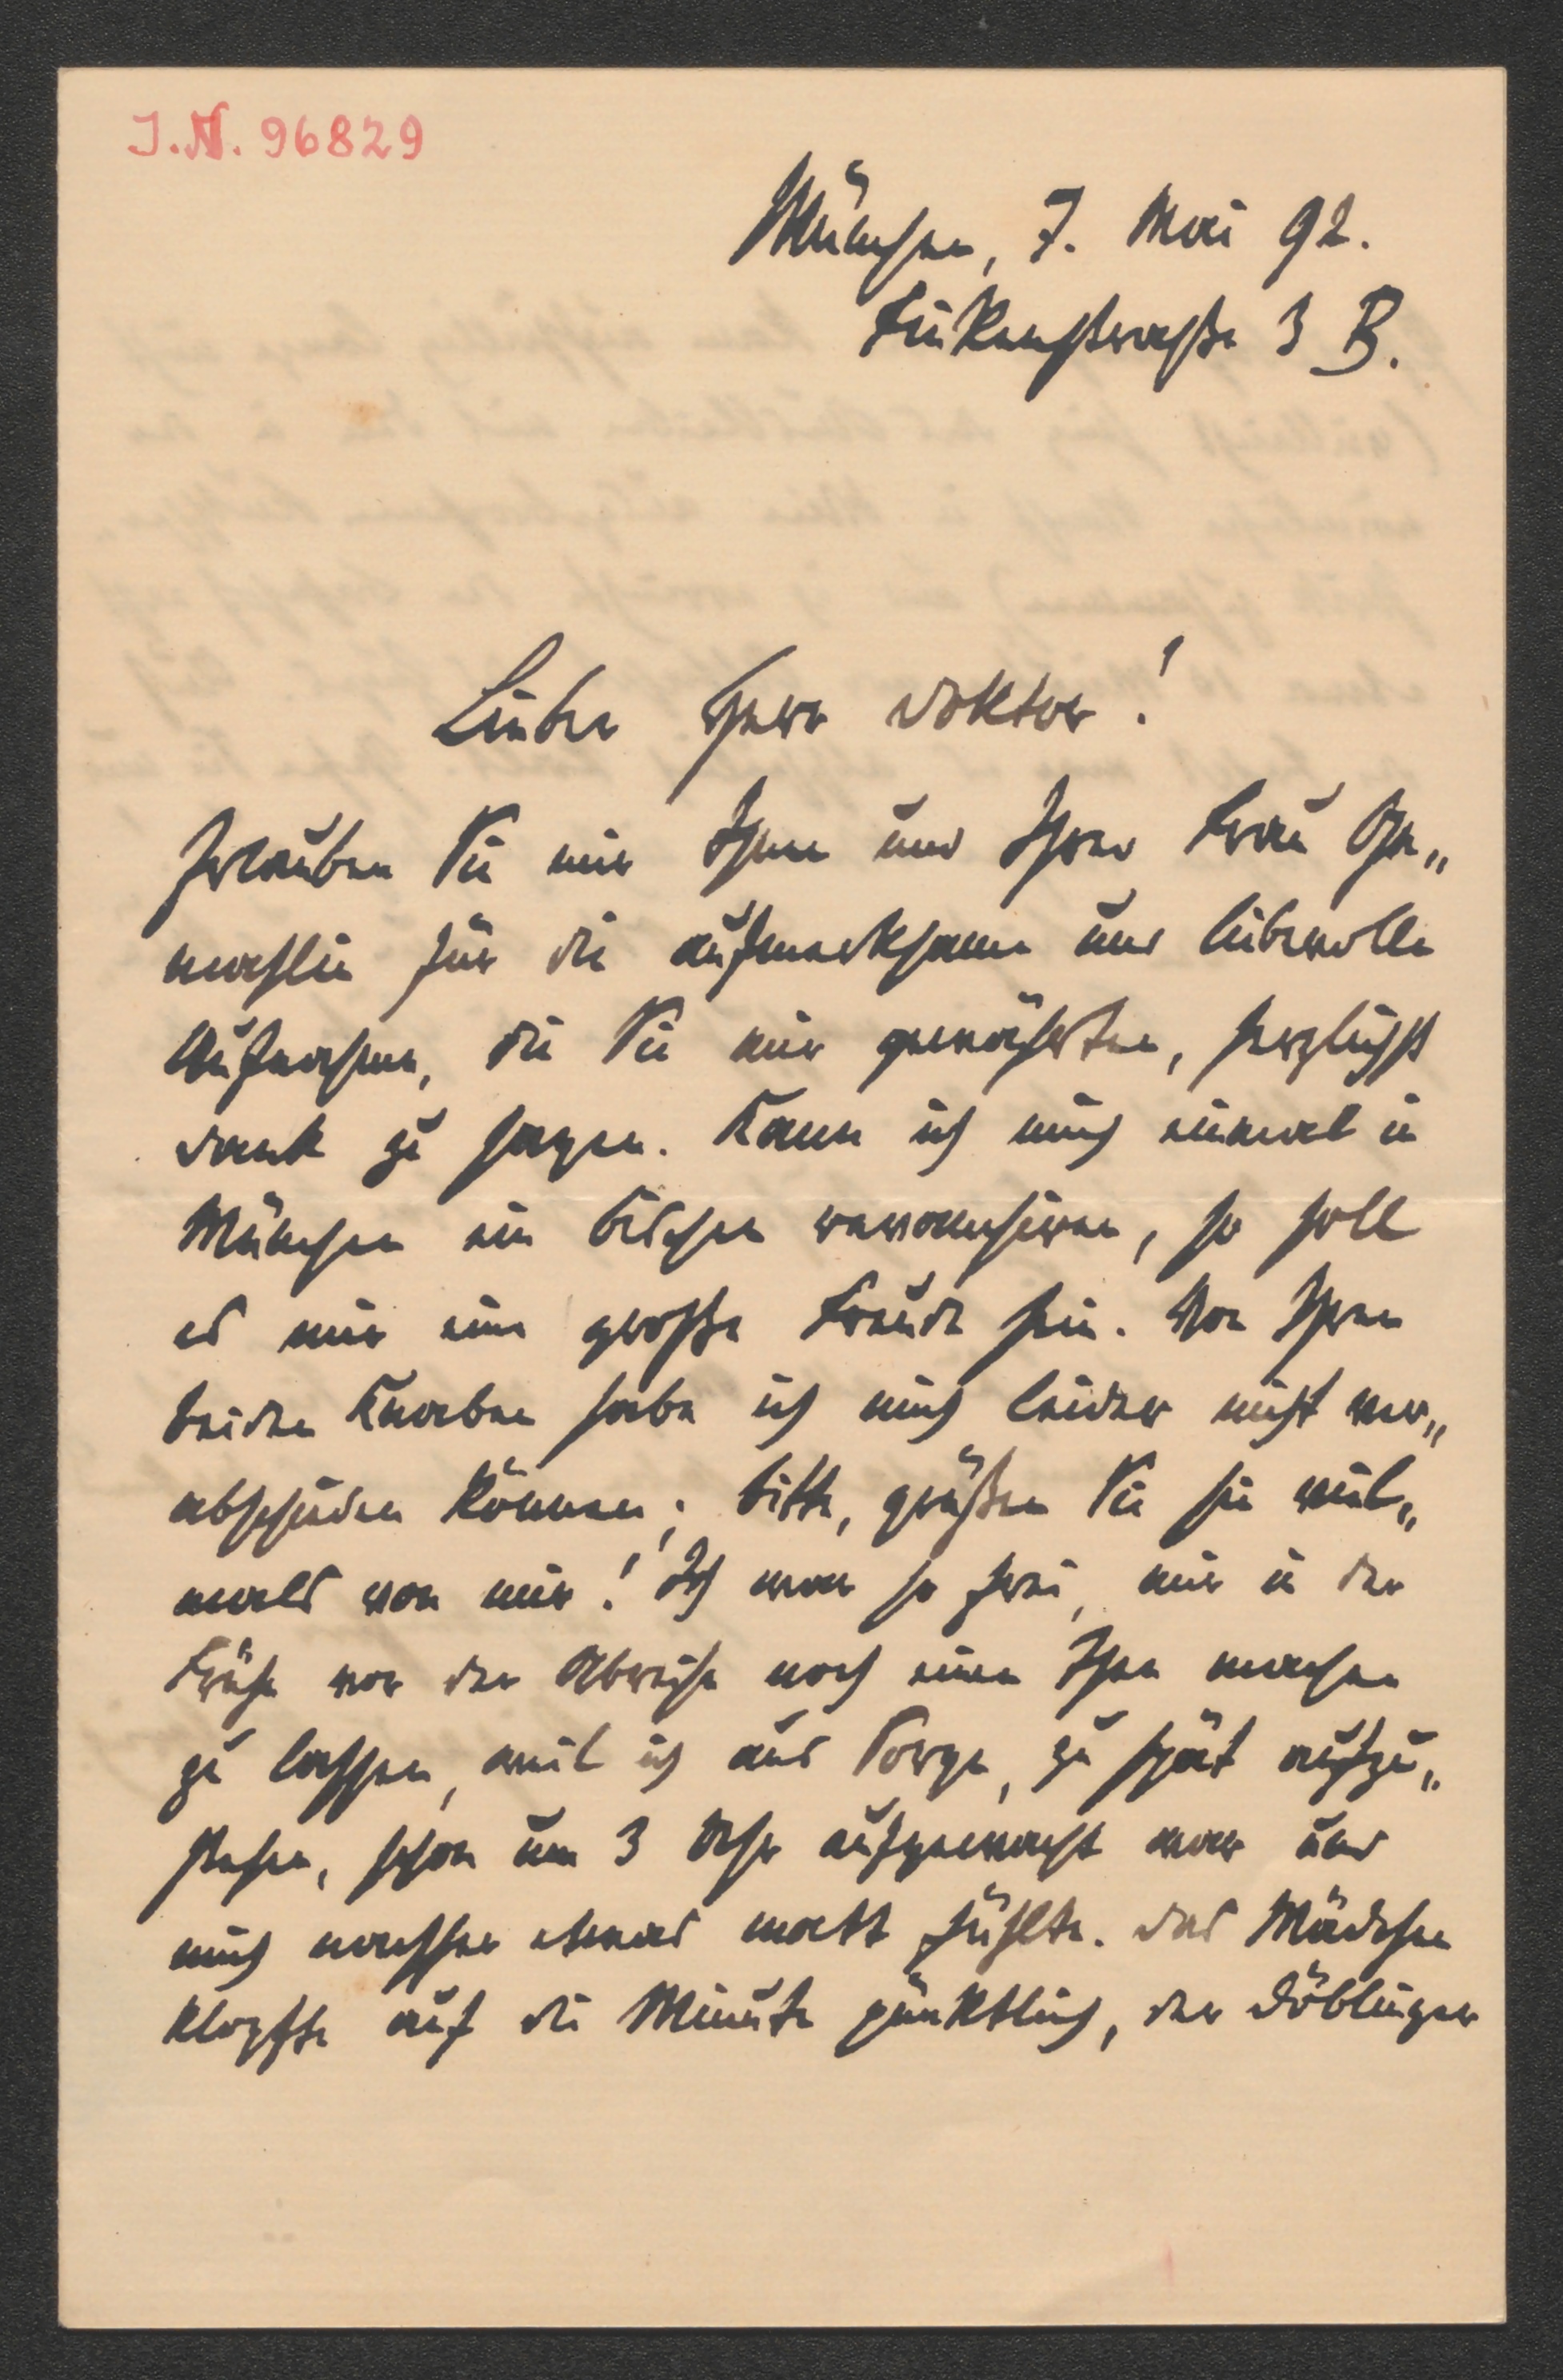 J.N. 96829
München, 7. Mai 92.
Finkenstraße 3 B.
Lieber Herr Doktor!
Erlauben Sie mir Ihnen und Ihrer Frau Ge„
mahlin für die aufmerksame und liebevolle
Aufnahme, die Sie mir gewährten, herzlichst
Dank zu sagen. Kann ich mich einmal in
München ein bischen revanchiren, so soll
es mir eine große Freude sein. Von Ihren
beiden Knaben habe ich mich leider nicht ver„
abschieden können; bitte, grüßen Sie sie viel„
mals von mir! Ich war so frei, mir in der
Frühe vor der Abreise noch einen Thee machen
zu lassen, weil ich aus Sorge, zu spät aufzu„
stehen, schon um 3 Uhr aufgewacht war und
mich nachher etwas matt fühlte. Das Mädchen
klopfte auf die Minute pünktlich, der Döblinger